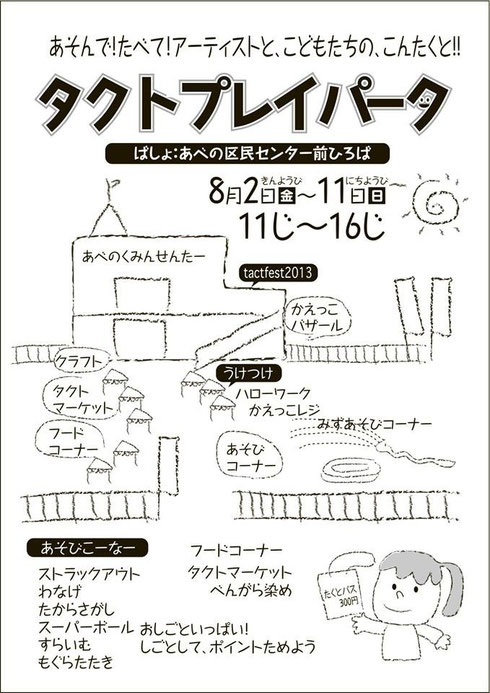 あそんで!たべて!アーティストと、こどもたちの、こんたくと!!
タクトプレイパーク
ばしょ:あべの区民センター前ひろば
きんようび にちようび
8月2日金〜11日日
11じ〜16じ
あべのくみんせんたー
tactfest2013
かえっこ
バザール
クラフト
うけつけ
タクト
マーケット
ハローワーク
かえっこレジ
フード
コーナー
みずあそびコーナー
あそび
コーナー
あそびこーなー
ストラックアウト
わなげ
たからさがし
スーパーボール
すらいむ
もぐらたたき
フードコーナー
タクトマーケット
べんがら染め
おしごといっぱい!
しごとして、ポイントためよう
たくとパス
300円